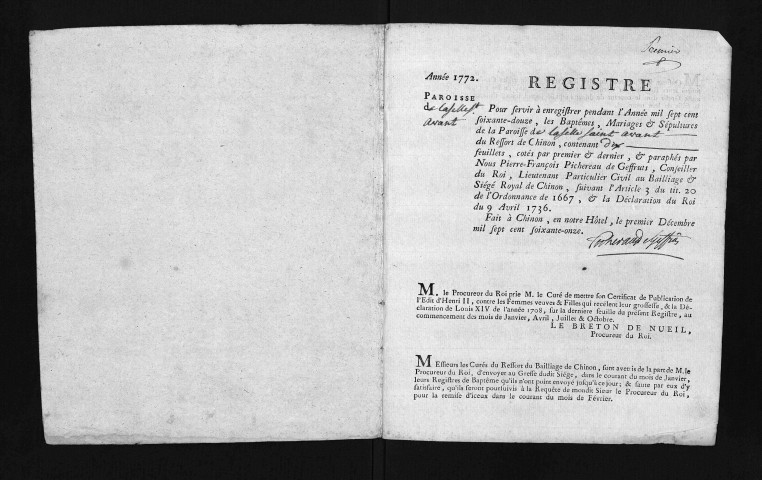 Premier
Année 1772.
REGISTRE
PAROISSE
de laselle st.
avant
Pour servir à enregistrer pendant l'Année mil sept cent
soixante-douze, les Baptêmes, Mariages & Sépultures
de la Paroisse de laselle saint avant
du Ressort de Chinon, contenant dix
feuillets, cotés par premier & dernier, & paraphés par
Nous Pierre-François Pichereau de Geffruts, Conseiller
du Roi, Lieutenant Particulier Civil au Bailliage &
Siégé Royal de Chinon, suivant l'Article 3 du tit. 20
de l'Ordonnance de 1667, & la Déclaration du Roi
du 9 Avril 1736.
Fait à Chinon, en notre Hôtel, le premier Décembre
mil sept cent soixante-onze.
M. le Procureur du Roi prie M. le Curé de mettre son Certificat de Publication de
l'Edit d'Henri II, contre les Femmes veuves & Filles qui recèlent leur grossesse, & la Dé-
claration de Louis XIV de l'année 1708, sur la derniere feuille du présent Registre, au
commencement des mois de Janvier, Avril, Juillet & Octobre.
LE BRETON DE NUEIL,
Procureur du Roi.
MEssieurs les Curés du Ressort du Bailliage de Chinon, sont avertis de la part de M. le
Procureur du Roi, d'envoyer au Greffe dudit Siége, dans le courant du mois de Janvier,
leurs Registres de Baptême qu'ils n'ont point envoyé jusqu'à ce jour; & faute par eux d'y
satisfaire, qu'ils seront poursuivis à la Requête de mondit Sieur le Procureur du Roi,
pour la remise d'iceux dans le courant du mois de Février.